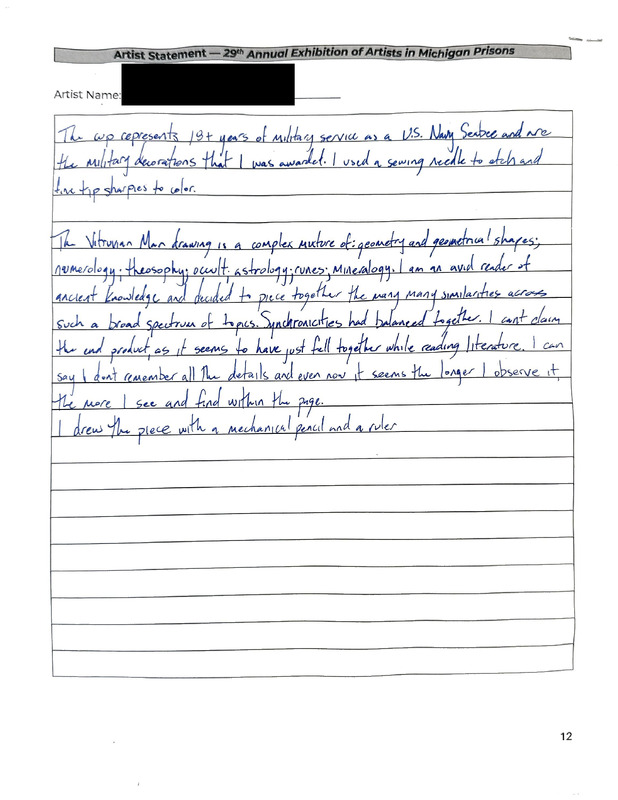 Artist Statement — 29th Annual Exhibition of Artists in Michigan Prisons
Artist Name:
The cup represents 18+ years of military service as a U.S. Navy Seabee and are
the military decorations that I was awarded. I used a sewing needle to etch and
fine tip sharpies to color.
The Vitruvian Man drawing is a complex mixture of: geometry and geometrical shapes;
numerology; theosophy; occult; astrology; runes; mineralogy. I am an avid reader of
ancient knowledge and decided to piece together the many many similarities across
such a broad spectrum of topics. Synchronicities had balanced together. I cant claim
the end product, as it seems to have just fell together while reading literature. I can
say I dont remember all the details and even now it seems the longer I observe it,
the more I see and find within the page.
I drew the piece with a mechanical pencil and a ruler
12